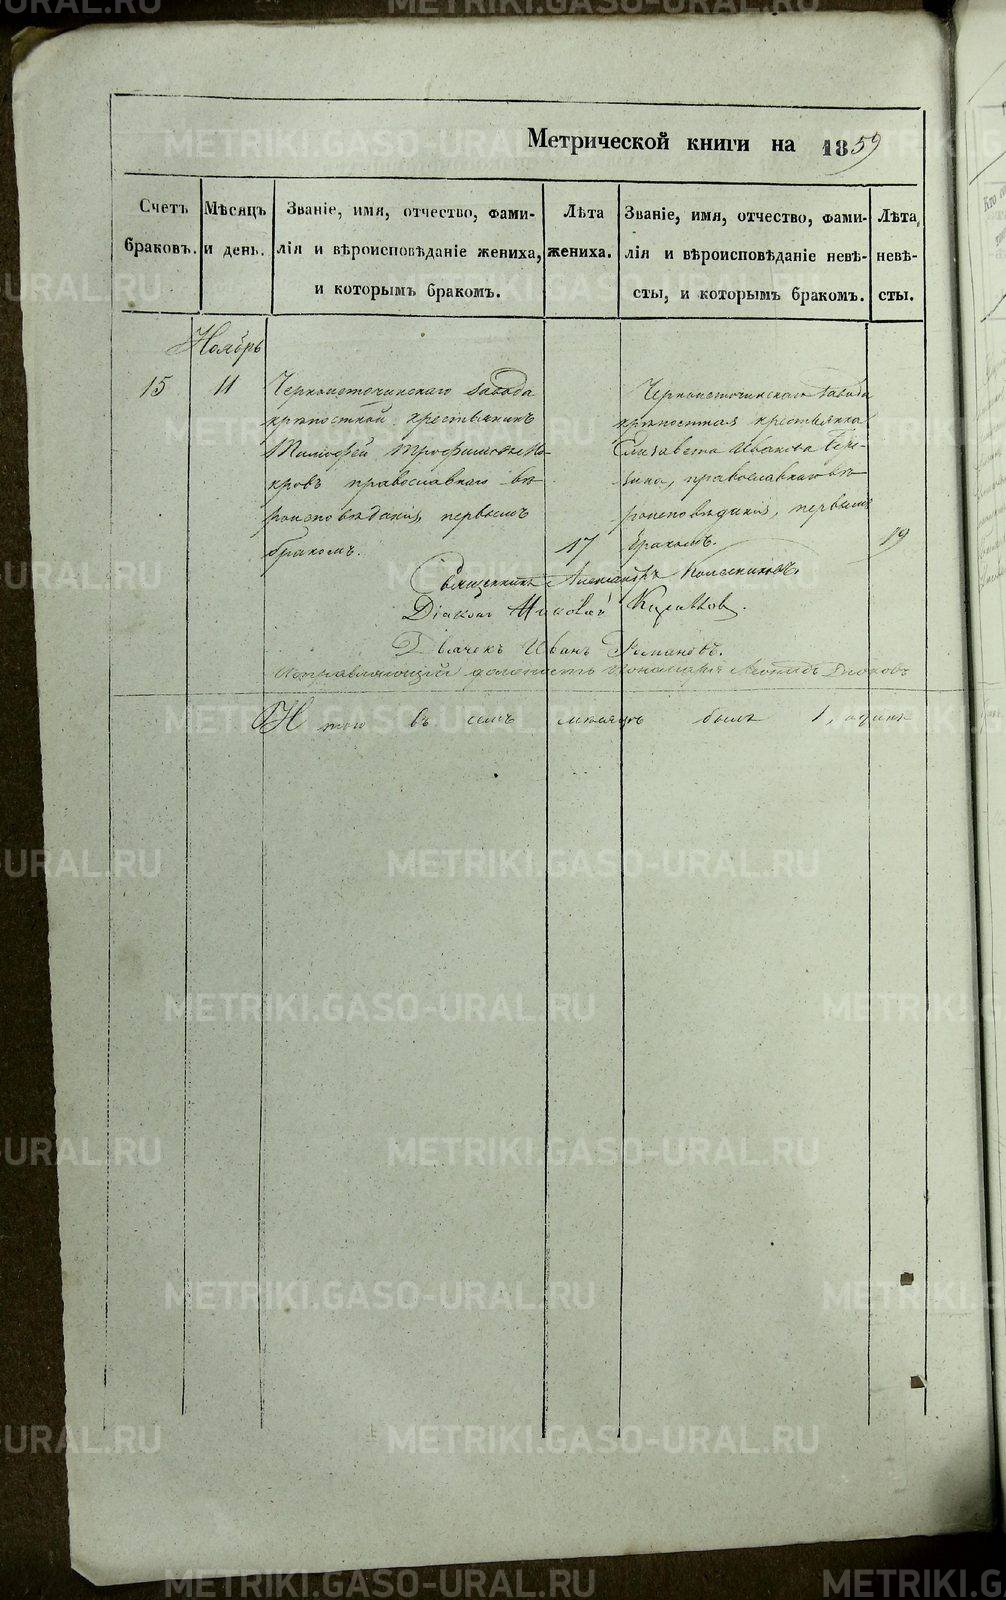 Метрической книги на 1859
Счетъ браковъ.
Мѣсяцъ и день.
Званіе, имя, отчество, фами-
лія и вѣроисповѣданіе жениха,
и которымъ бракомъ.
Лѣта
жениха.
Званіе, имя, отчество, фами-
лія и вѣроисповѣданіе невѣ-
сты, и которымъ бракомъ.
Лѣта
невѣ-
сты.
Ноябрь
15
11
Черноисточинскаго завода
крѣпостной крестьянинъ
Тимофей Трофимовъ По-
кровъ православнаго вѣ
роисповѣданія, первымъ
бракомъ.
17
Черноисточинскаго завода
крѣпостная крестьянка
Елизавета Иванова
православнаго вѣ
роисповѣданія, первымъ
бракомъ.
19
Священникъ Александръ Колесниковъ.
Діаконъ Николай
Дьячокъ Иванъ Романовъ.
Исправляющій должность Пономаря Леонидъ
Итого въ семъ мѣсяцѣ былъ 1, одинъ
METRIKI.GASO-URAL.RU